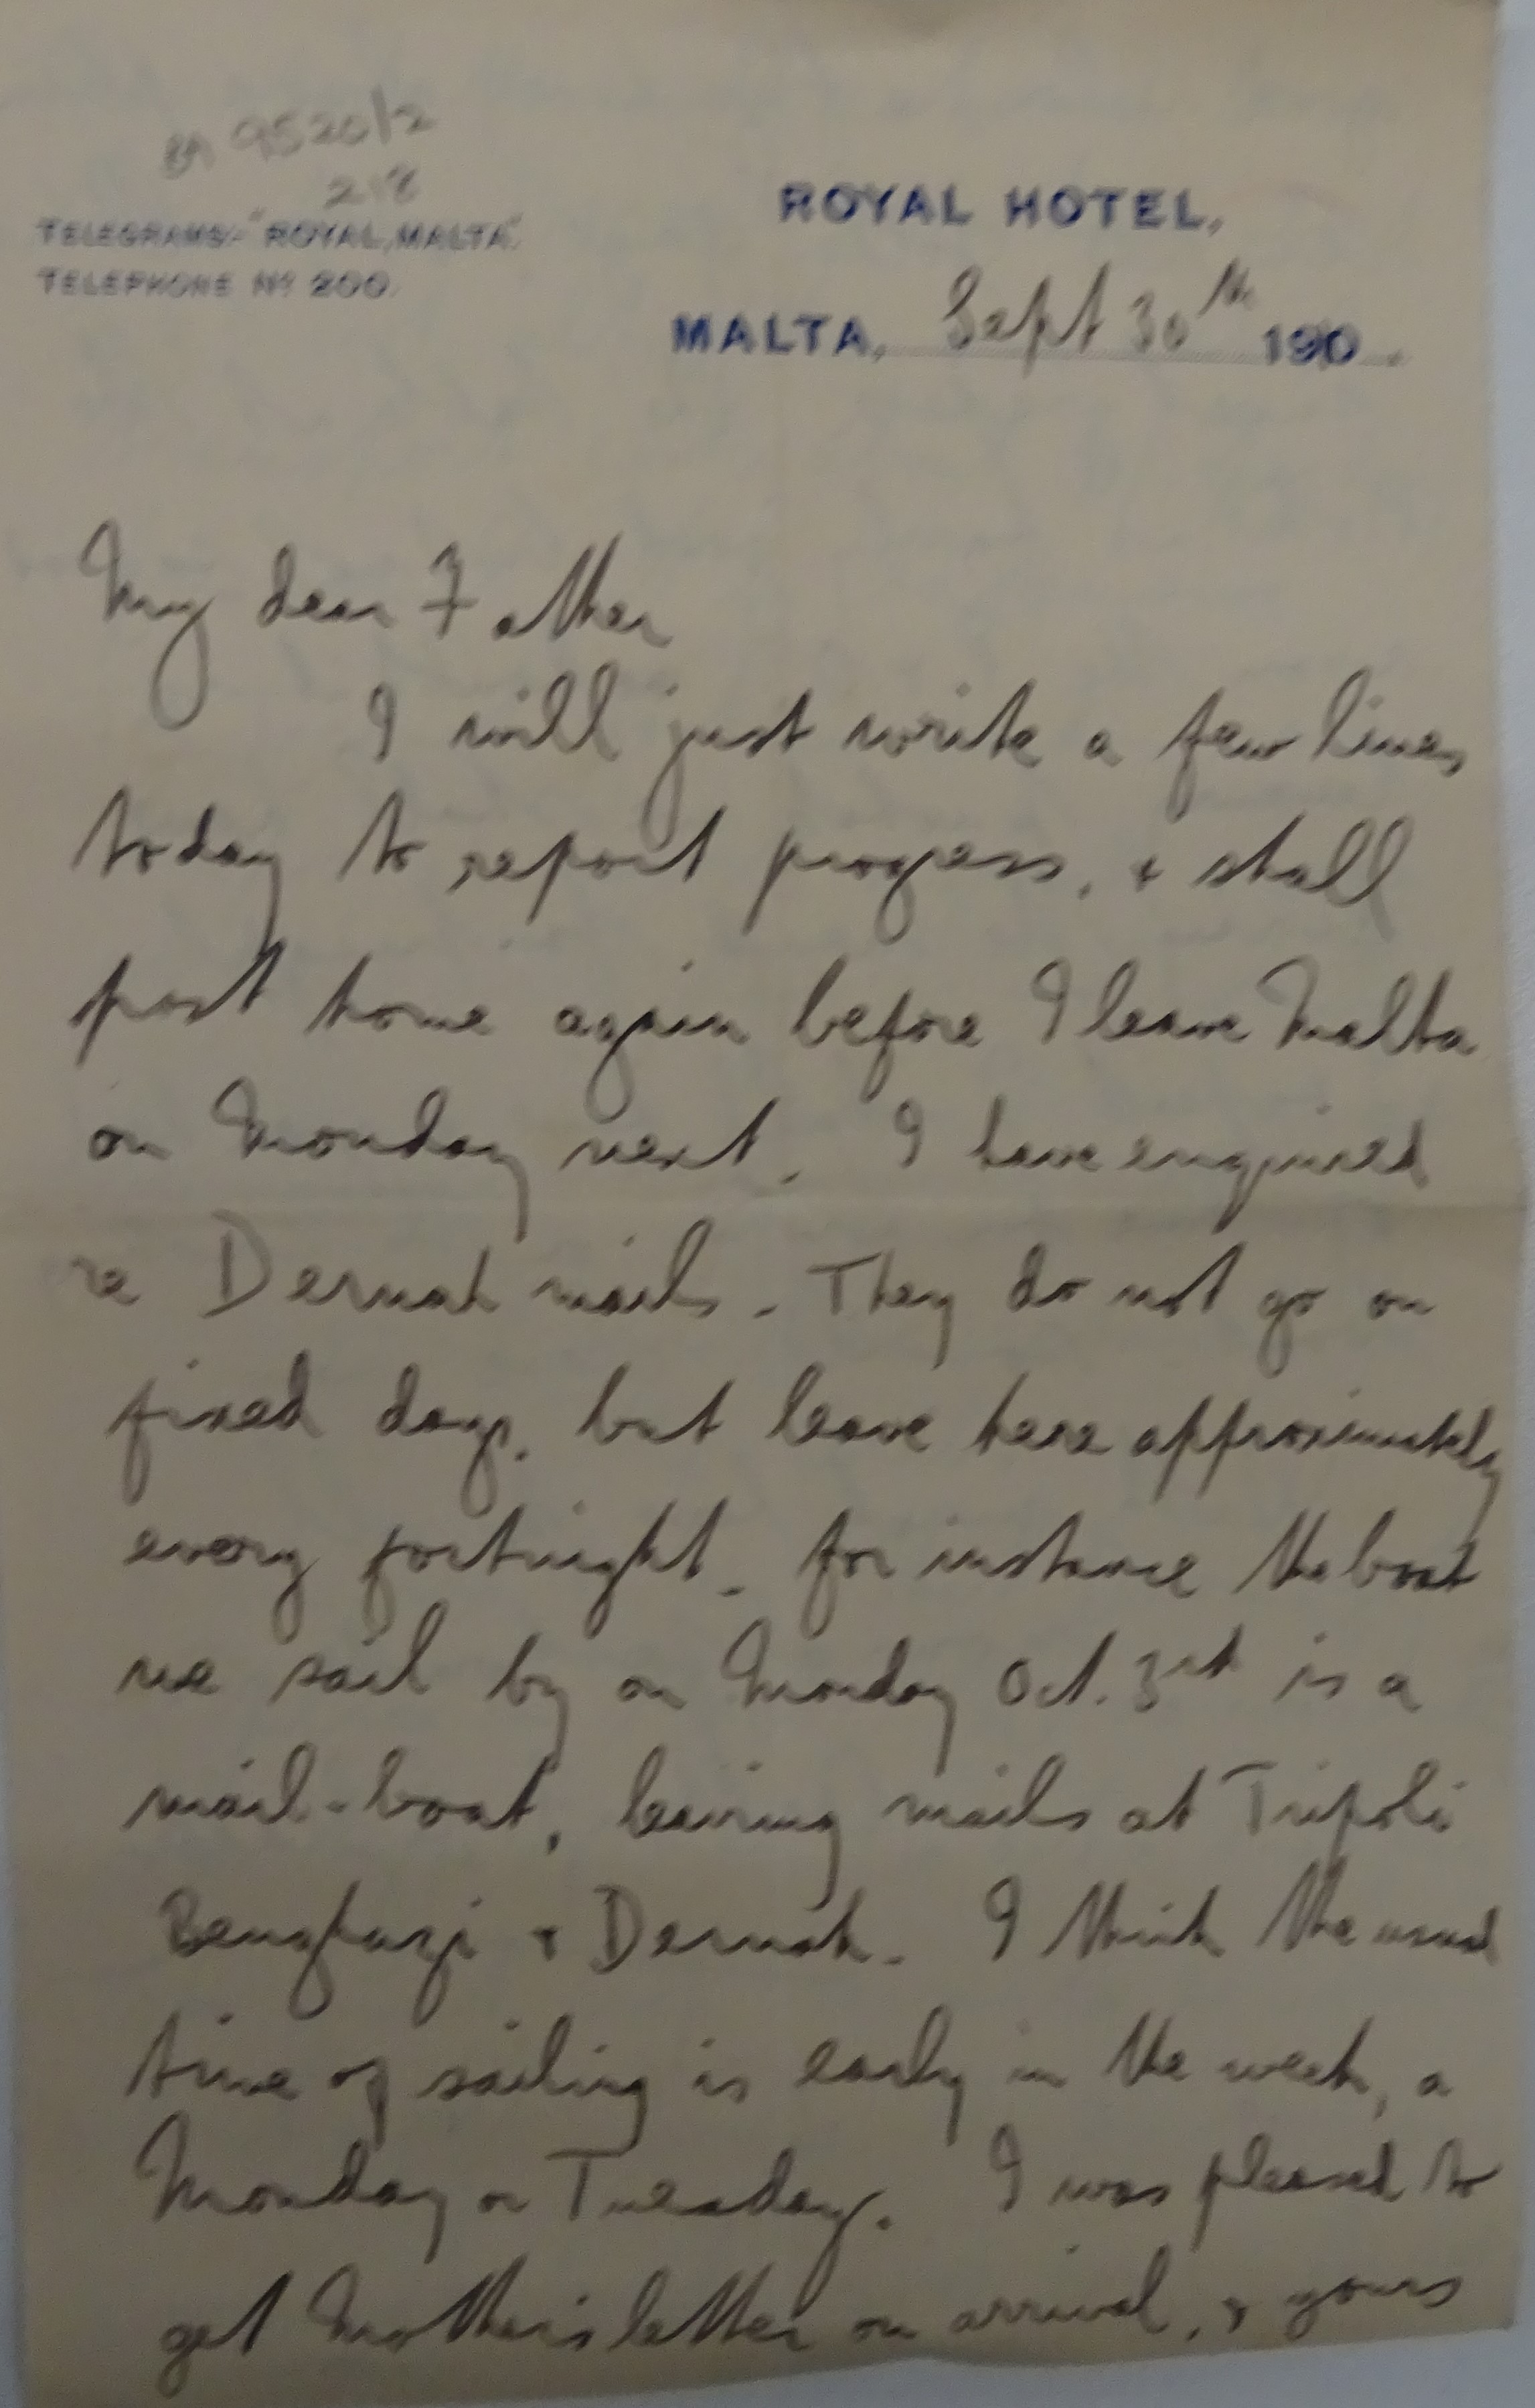 9520/2
218
TELEGRAMS:- "ROYAL, MALTA".
TELEPHONE Nº 200.
ROYAL HOTEL,
MALTA, Sept 30th 190
My dear Father
I will just write a few lines
today to report progress, & shall
post home again before I leave Malta
on Monday next. I have enquired
re Dernah mails. They do not go on
fixed days, but leave here approximately
every fortnight. for instance the boat
we sail by on Monday Oct. 3rd is a
mail-boat, leaving mails at Tripoli
Benghazi & Dernah. I think the usual
time of sailing is early in the week, a
Monday or Tuesday. I was pleased to
get Mother's letter on arrival, & yours